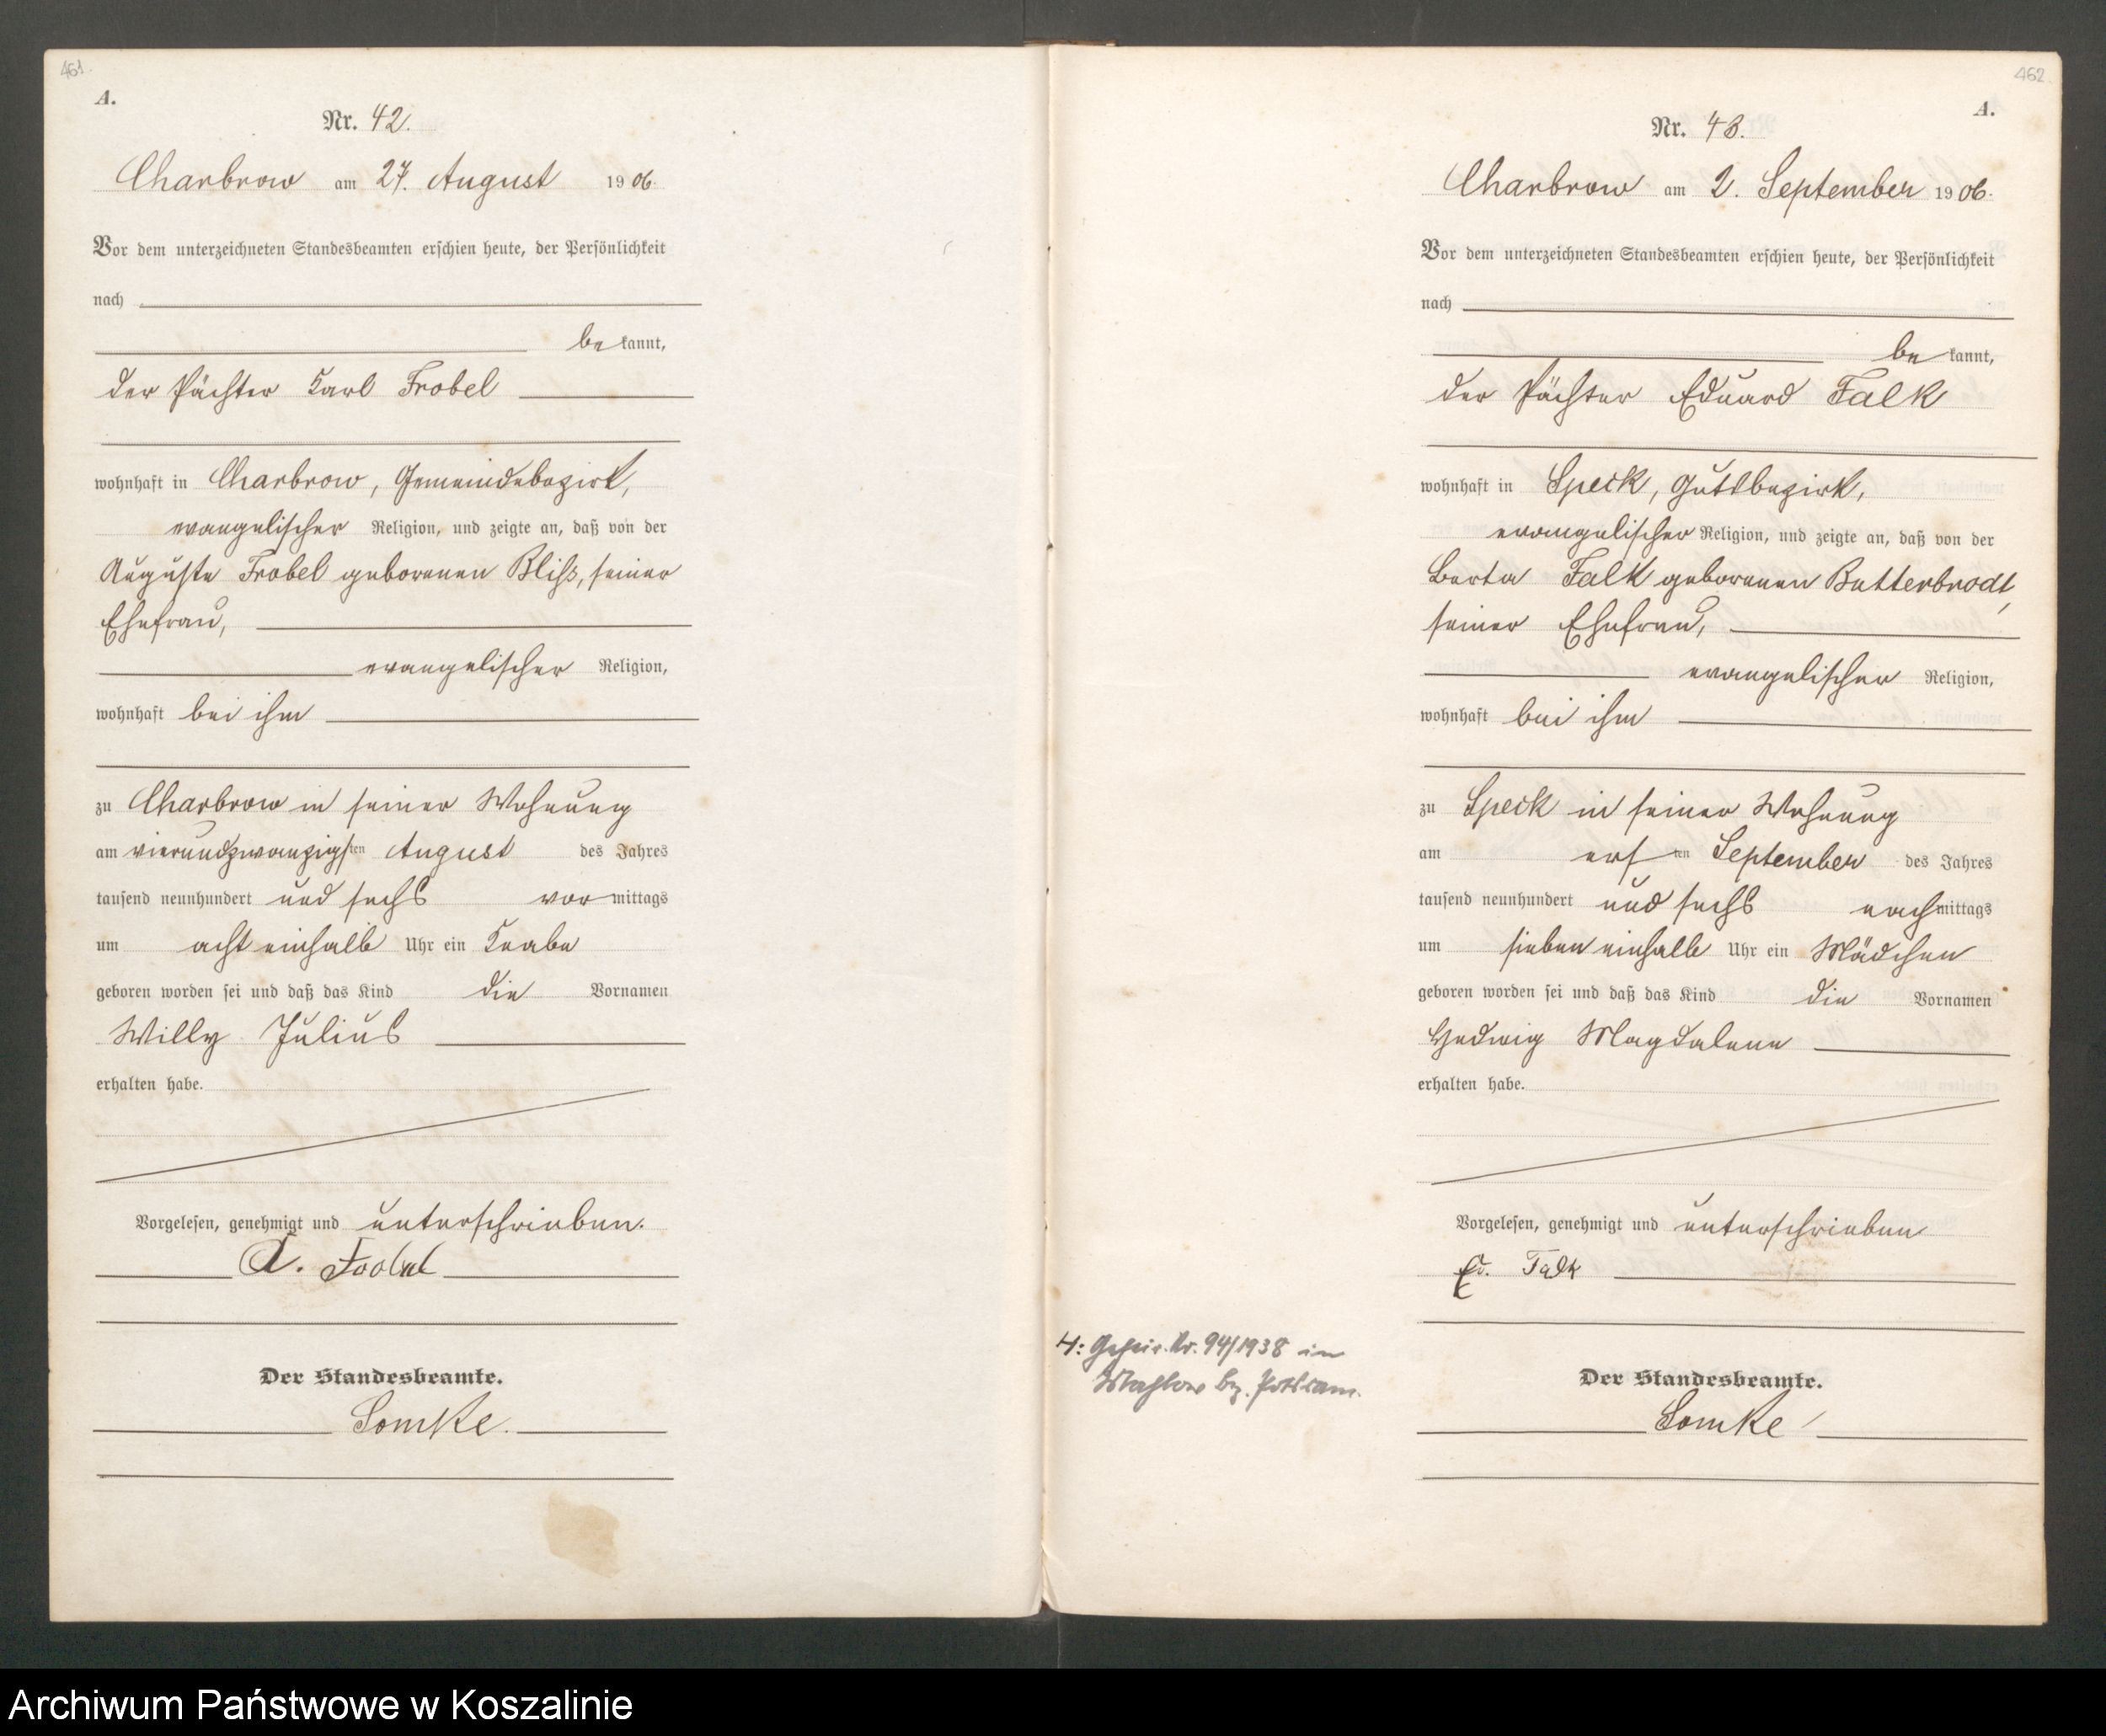 461.
A.
Nr. 42.
Charbrow am 27. August 1906.
Vor dem unterzeichneten Standesbeamten erschien heute, der Persönlichkeit
nach
bekannt,
der Pächter Karl Frobel
wohnhaft in Charbrow, Gemeindebezirk,
evangelischer Religion, und zeigte an, daß von der
Auguste Frobel geborenen Bliß, seiner
Ehefrau,
evangelischer Religion,
wohnhaft bei ihm
zu Charbrow in seiner Wohnung
am vierundzwanzigsten August des Jahres
tausend neunhundert und sechs vormittags
um acht einhalb Uhr ein Knabe
geboren worden sei und daß das Kind die Vornamen
Willy Julius
erhalten habe.
Vorgelesen, genehmigt und unterschrieben.
Der Standesbeamte.
Lomke.
462
A.
Nr. 43.
Charbrow am 2. September 1906.
Vor dem unterzeichneten Standesbeamten erschien heute, der Persönlichkeit
nach
bekannt,
der Pächter Eduard Falk
wohnhaft in Speck, Gutsbezirk,
evangelischer Religion, und zeigte an, daß von der
Berta Falk geborenen Butterbrodt,
seiner Ehefrau,
evangelischer Religion,
wohnhaft bei ihm
zu Speck in seiner Wohnung
am ersten September des Jahres
tausend neunhundert und sechs nachmittags
um sieben einhalb Uhr ein Mädchen
geboren worden sei und daß das Kind die Vornamen
Hedwig Magdalene
erhalten habe.
Vorgelesen, genehmigt und unterschrieben
Ed. Falk
H: Geheir. Nr. 94/1938 in
Mahlow Bz. Potsdam.
Der Standesbeamte.
Lomke
Archiwum Państwowe w Koszalinie